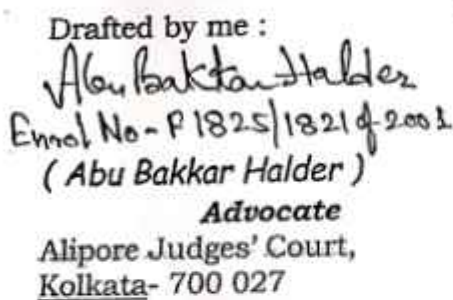 Drafted by me :
Abu Bakkar Halder
Enrol No - F 1825/1821 of 2001
( Abu Bakkar Halder )
Advocate
Alipore Judges' Court,
Kolkata- 700 027